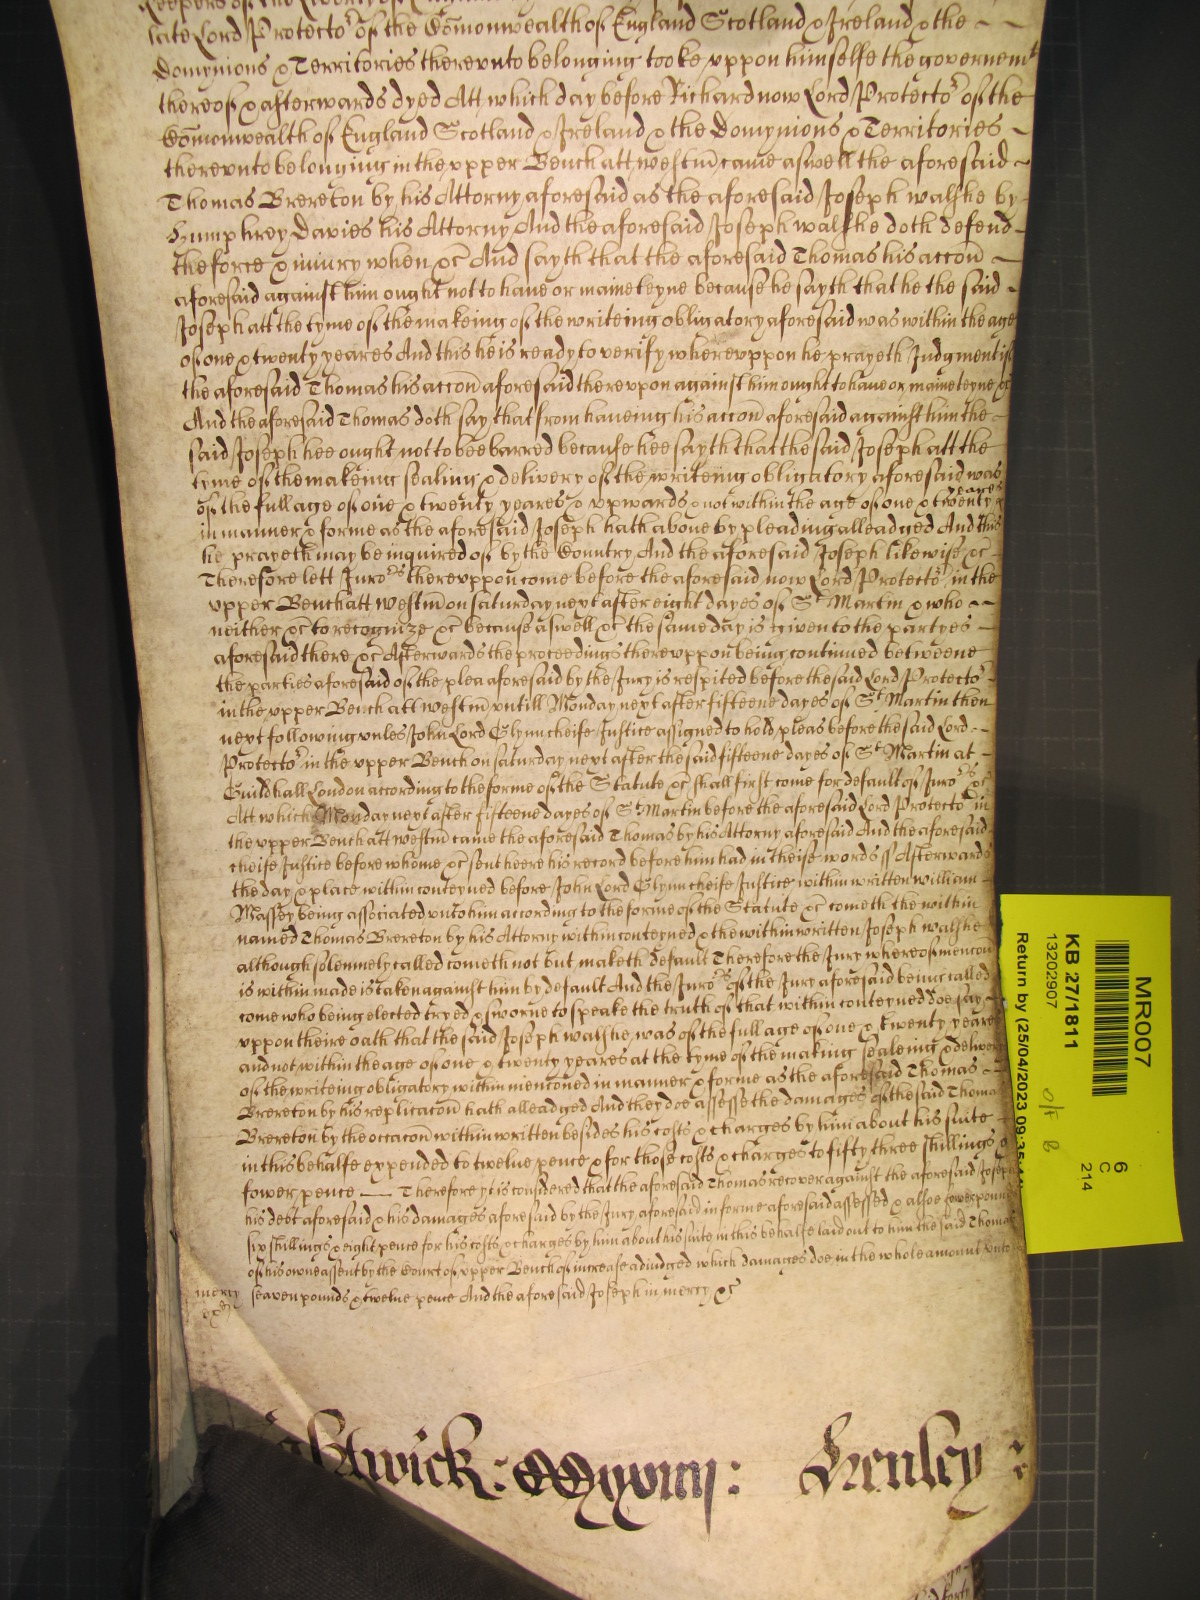 late Lord Protector of the Com̄onwealth of England Scotland & Ireland & the
Domynions & Territories therevnto belonging tooke vppon himselfe the governemt
thereof & afterwards dyed Att which day before Richard now Lord Protector of the
Com̄onwealth of England Scotland & Ireland & the Domynions & Territories
therevnto belonging in the vpper Bench att westm̄ came aswell the aforesaid
Thomas Brereton by his Attorny aforesaid as the aforesaid Joseph walshe by
Humphrey Davies his Attorny And the aforesaid Joseph walshe doth defend
the force & iniury when &c And sayth that the aforesaid Thomas his accon̄
aforesaid against him ought not to haue or mainteyne because he sayth that he the said
Joseph att the tyme of the makeing of the writeing obligatory aforesaid was within the age
of one & twenty yeares And this he is ready to verify wherevppon he prayeth Judgment if
the aforesaid Thomas his accon̄ aforesaid therevpon against him ought to haue or mainteyne &c
And the aforesaid Thomas doth say that from haueing his accon̄ aforesaid against him the
said Joseph hee ought not to bee barred because hee sayth that the said Joseph att the
tyme of the makeing sealing & delivery of the writeing obligatory aforesaid was
of the full age of one & twenty yeares & vpwards & not within the age of one & twenty yeares
in manner & forme as the aforesaid Joseph hath aboue by pleading alleadged And this
he prayeth may be inquired of by the Country And the aforesaid Joseph likewise &c
Therefore lett Jurors therevppon come before the aforesaid now Lord Protector in the
vpper Bench att westm̄ on saturday next after eight dayes of St Martin & who
neither &c to recognize &c because aswell &c the same day is given to the partyes
aforesaid there &c Afterwards the proceedings therevppon being continued betweene
the parties aforesaid of the plea aforesaid by the Jury is respited before the said Lord Protector
in the vpper Bench att westm̄ vntill Monday next after fifteene dayes of St Martin then
next following vnles John Lord Glynn cheife Justice assigned to hold pleas before the said Lord
Protector in the vpper Bench on saturday next after the said fifteene dayes of St Martin at
Guildhall London according to the forme of the Statute &c shall first come for default of Jurors &c
Att which Monday next after fifteene dayes of St Martin before the aforesaid Lord Protector in
the vpper Bench att westm̄ came the aforesaid Thomas by his Attorny aforesaid And the aforesaid
cheife Justice before whome &c sent heere his record before him had in theise words ss Afterwards
the day & place within conteyned before John Lord Glynn cheife Justice within written william
Massey being associated vnto him according to the forme of the Statute &c cometh the within
named Thomas Brereton by his Attorny within conteyned & the within written Joseph walshe
although solemnely called cometh not but maketh default Therefore the Jury whereof mencon
is within made is taken against him by default And the Jurors of the Jury aforesaid being called
come who being elected tryed & sworne to speake the truth of that within conteyned doe say
vppon theire oath that the said Joseph walshe was of the full age of one & twenty yeares
and not within the age of one & twenty yeares at the tyme of the making sealeing & delivery
of the writeing obligatory within mencioned in manner & forme as the aforesaid Thomas
Brereton by his replicacon̄ hath alleadged And they doe assesse the damages of the said Thomas
Brereton by the occacon̄ within written besides his costs & charges by him about his suite
in this behalfe expended to twelue pence & for those costs & charges to fifty three shillings &
fower pence Therefore yt is considered that the aforesaid Thomas recover against the aforesaid Joseph
his debt aforesaid & his damages aforesaid by the Jury aforesaid in forme aforesaid assessed & alsoe fower pounds
six shillings & eight pence for his costs & charges by him about his suite in this behalfe laid out to him the said Thomas
of his owne assent by the Court of vpper Bench of increase adiudged which damages doe in the whole amount vnto
seaven pounds & twelue pence And the aforesaid Joseph in mercy &c
mercy
Henley
MR007
KB 27/1811
13202907
Return by (25/04/2023 09:35:4
6
C
214